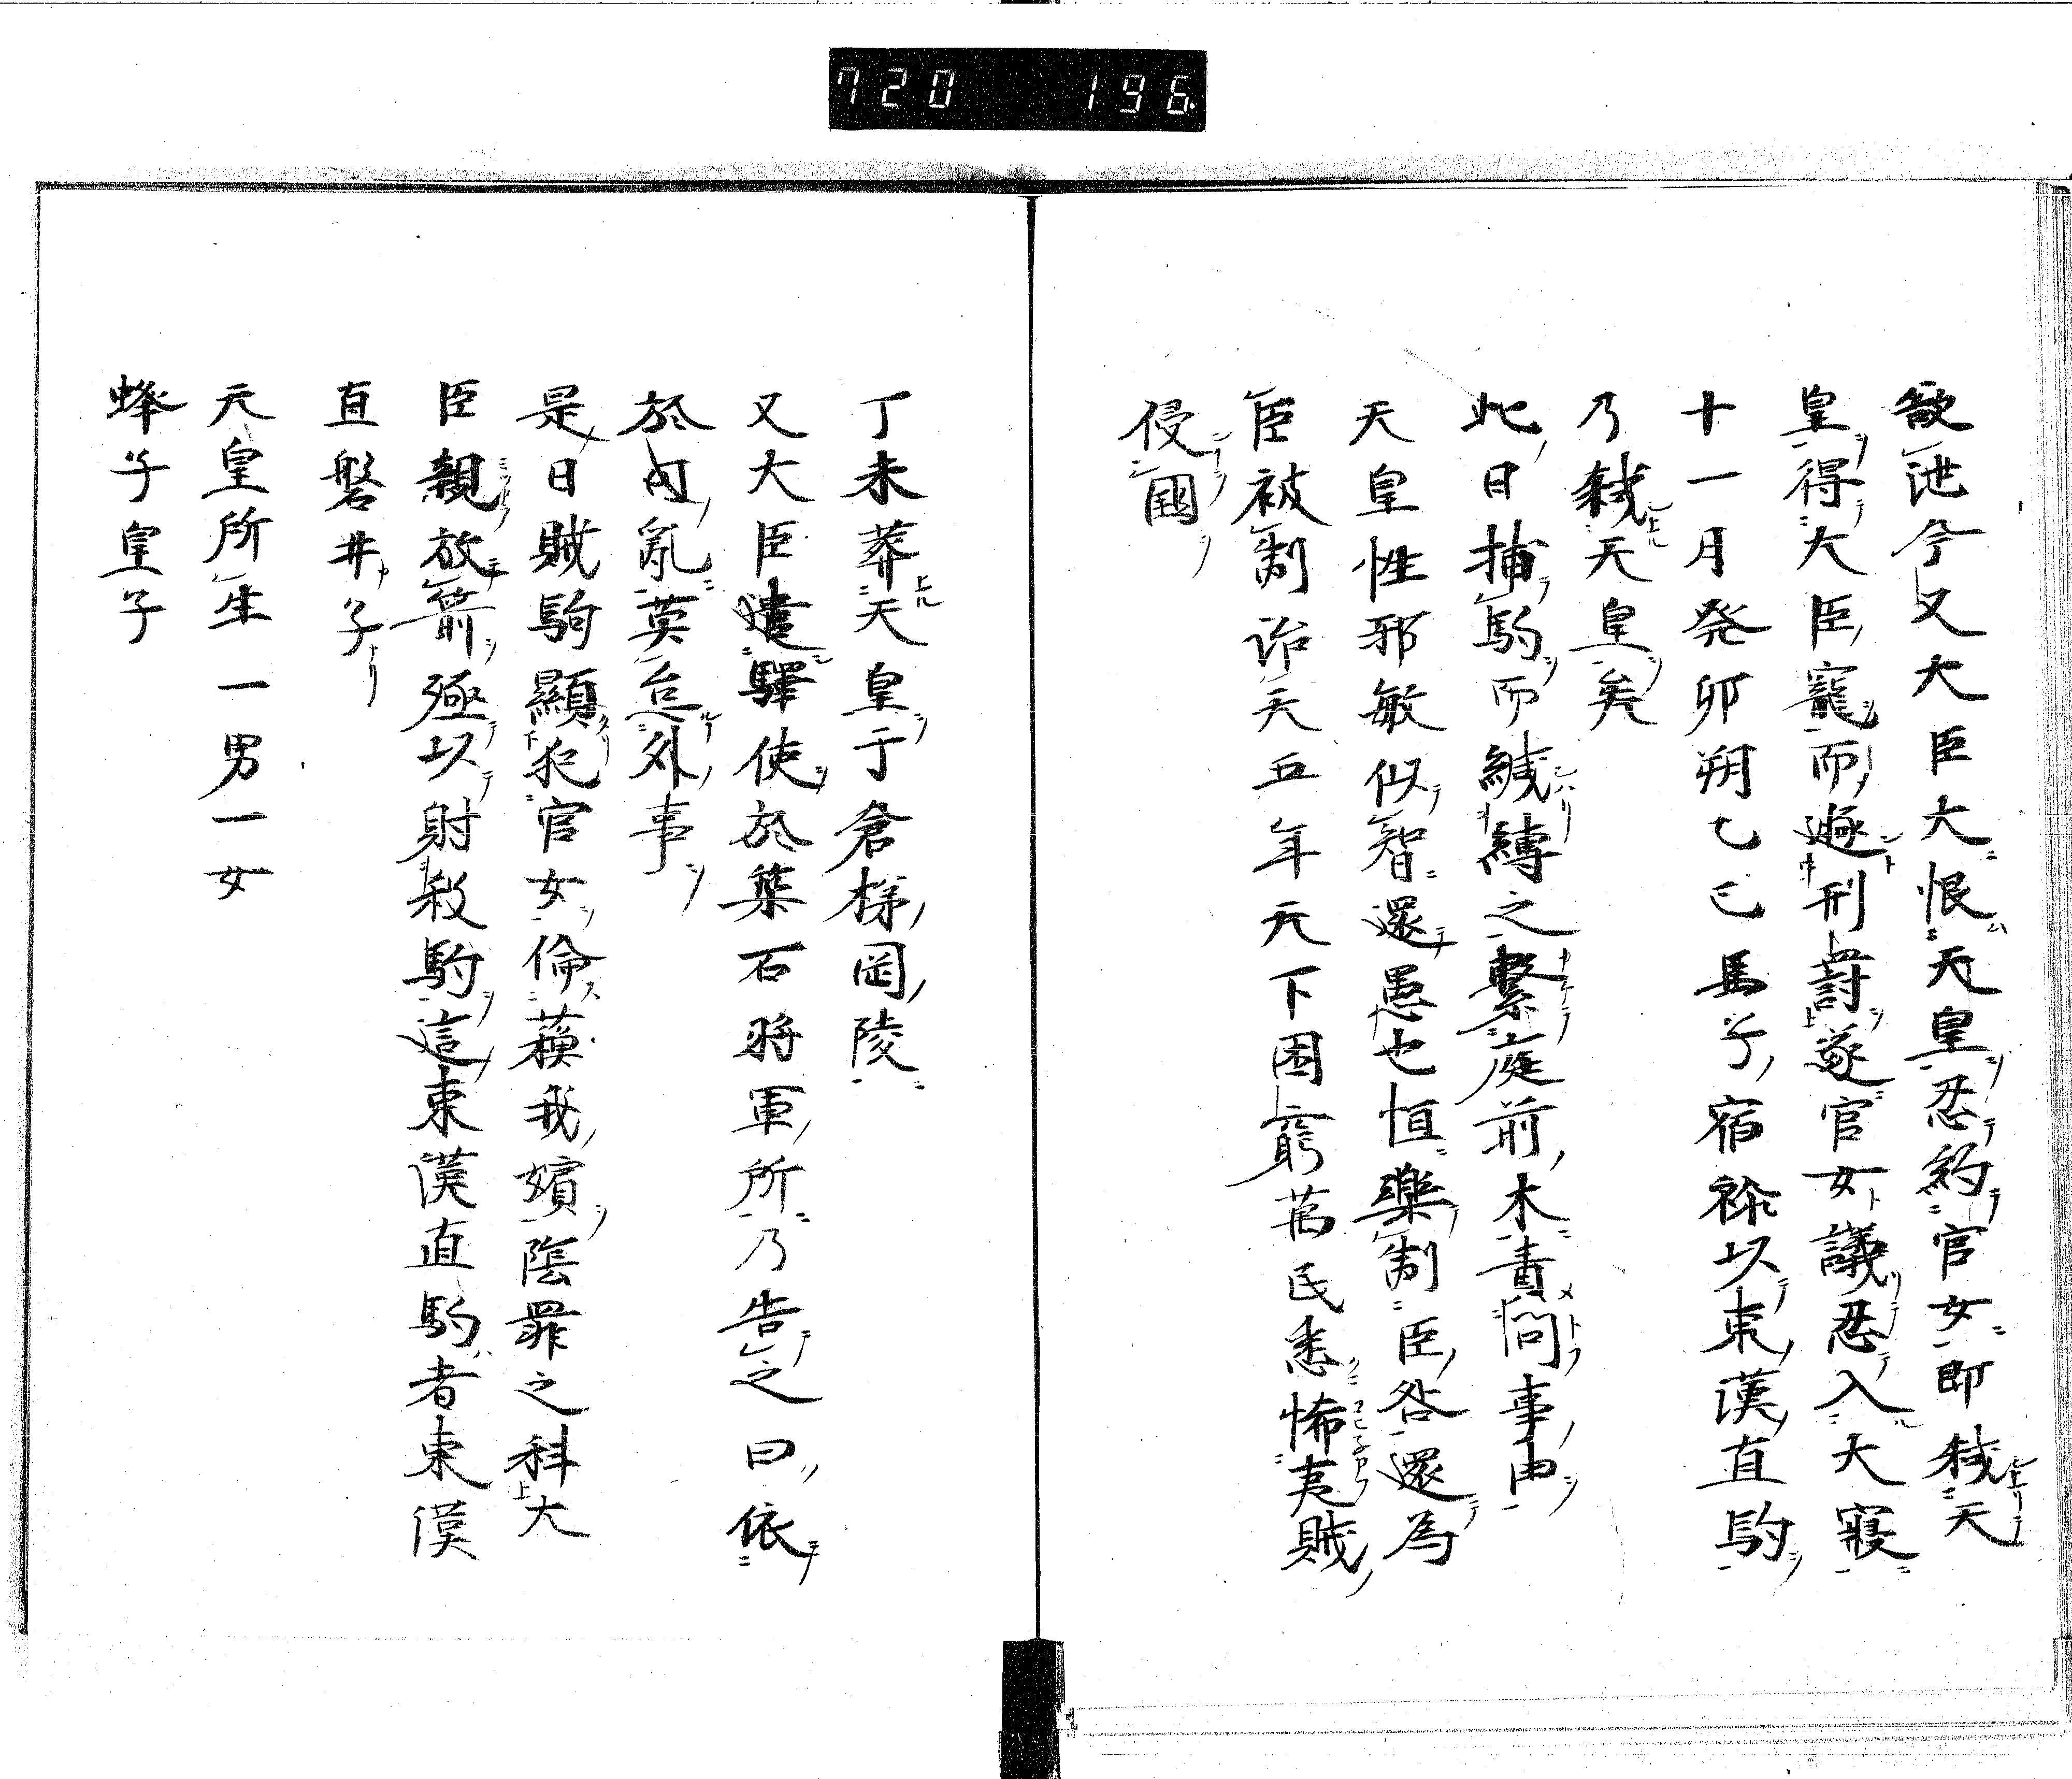 720 196
欲泄今又大臣大恨天皇忍約官女即弑天
皇得大臣寵而遁刑罸遂官女議忍入大寝
十一月癸卯朔乙巳馬子宿祢以東漢直駒
乃弑天皇矣
此日捕駒而緘縛之繋庭前木責問事由
天皇性邪敏似智還愚也恒樂制臣咎還為
臣被制治天五年天下困窮萬民悉怖夷賊
侵國
丁未葬天皇于倉梯岡陵
又大臣遣驛使於築石将軍所乃告之曰依
於内乱莫怠外事
是日賊駒顯犯官女倫蘓我嬪陰罪之科大
臣親放箭極以射殺駒這東漢直駒者東漢
直磐井子
天皇所生一男一女
蜂子皇子